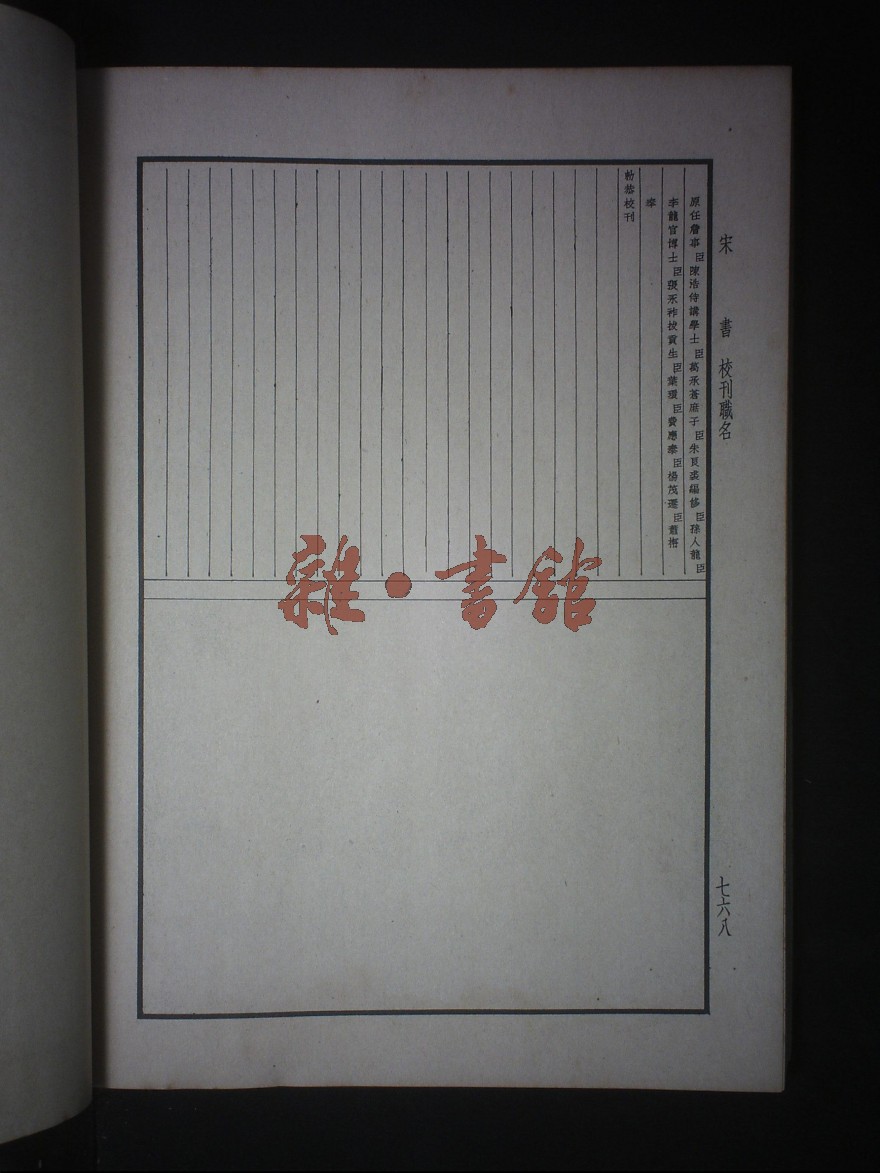 宋 書 校刊職名
原任詹事臣陳浩侍講學士臣萬承蒼庶子臣朱良裘編修臣孫人龍臣
李龍官博士臣張永祚拔貢生臣葉環臣費應泰臣楊茂遷臣戴
奉
勅恭校刊
七六八
雜·書館